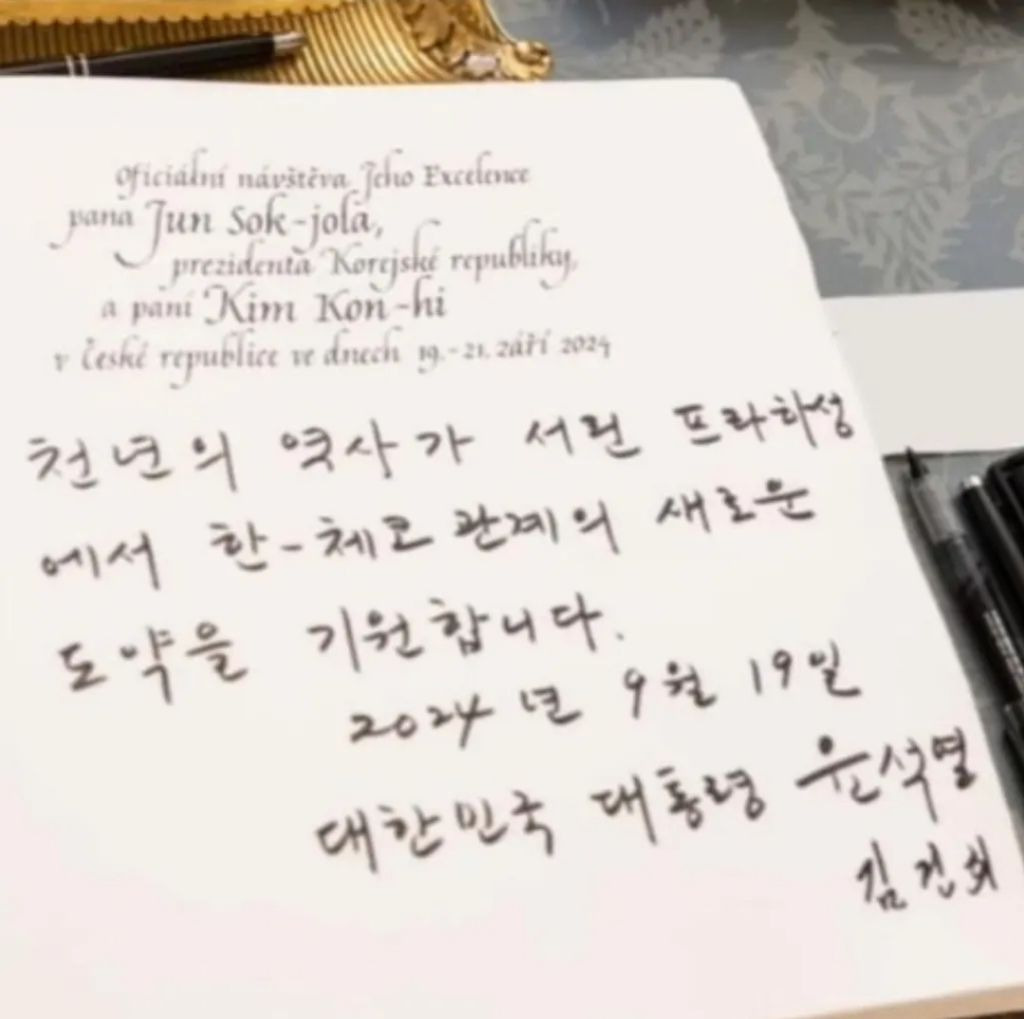 Oficiální návštěva Jeho Excelence
pana Jun Sok-jola,
prezidenta Korejské republiky,
a paní Kim Kon-hi
v České republice ve dnech 19.-21. září 2024
천년의 역사가 서린 프라하성
에서 한-체코 관계의 새로운
도약을 기원합니다.
2024년 9월 19일
대한민국 대통령 윤석열
김건희